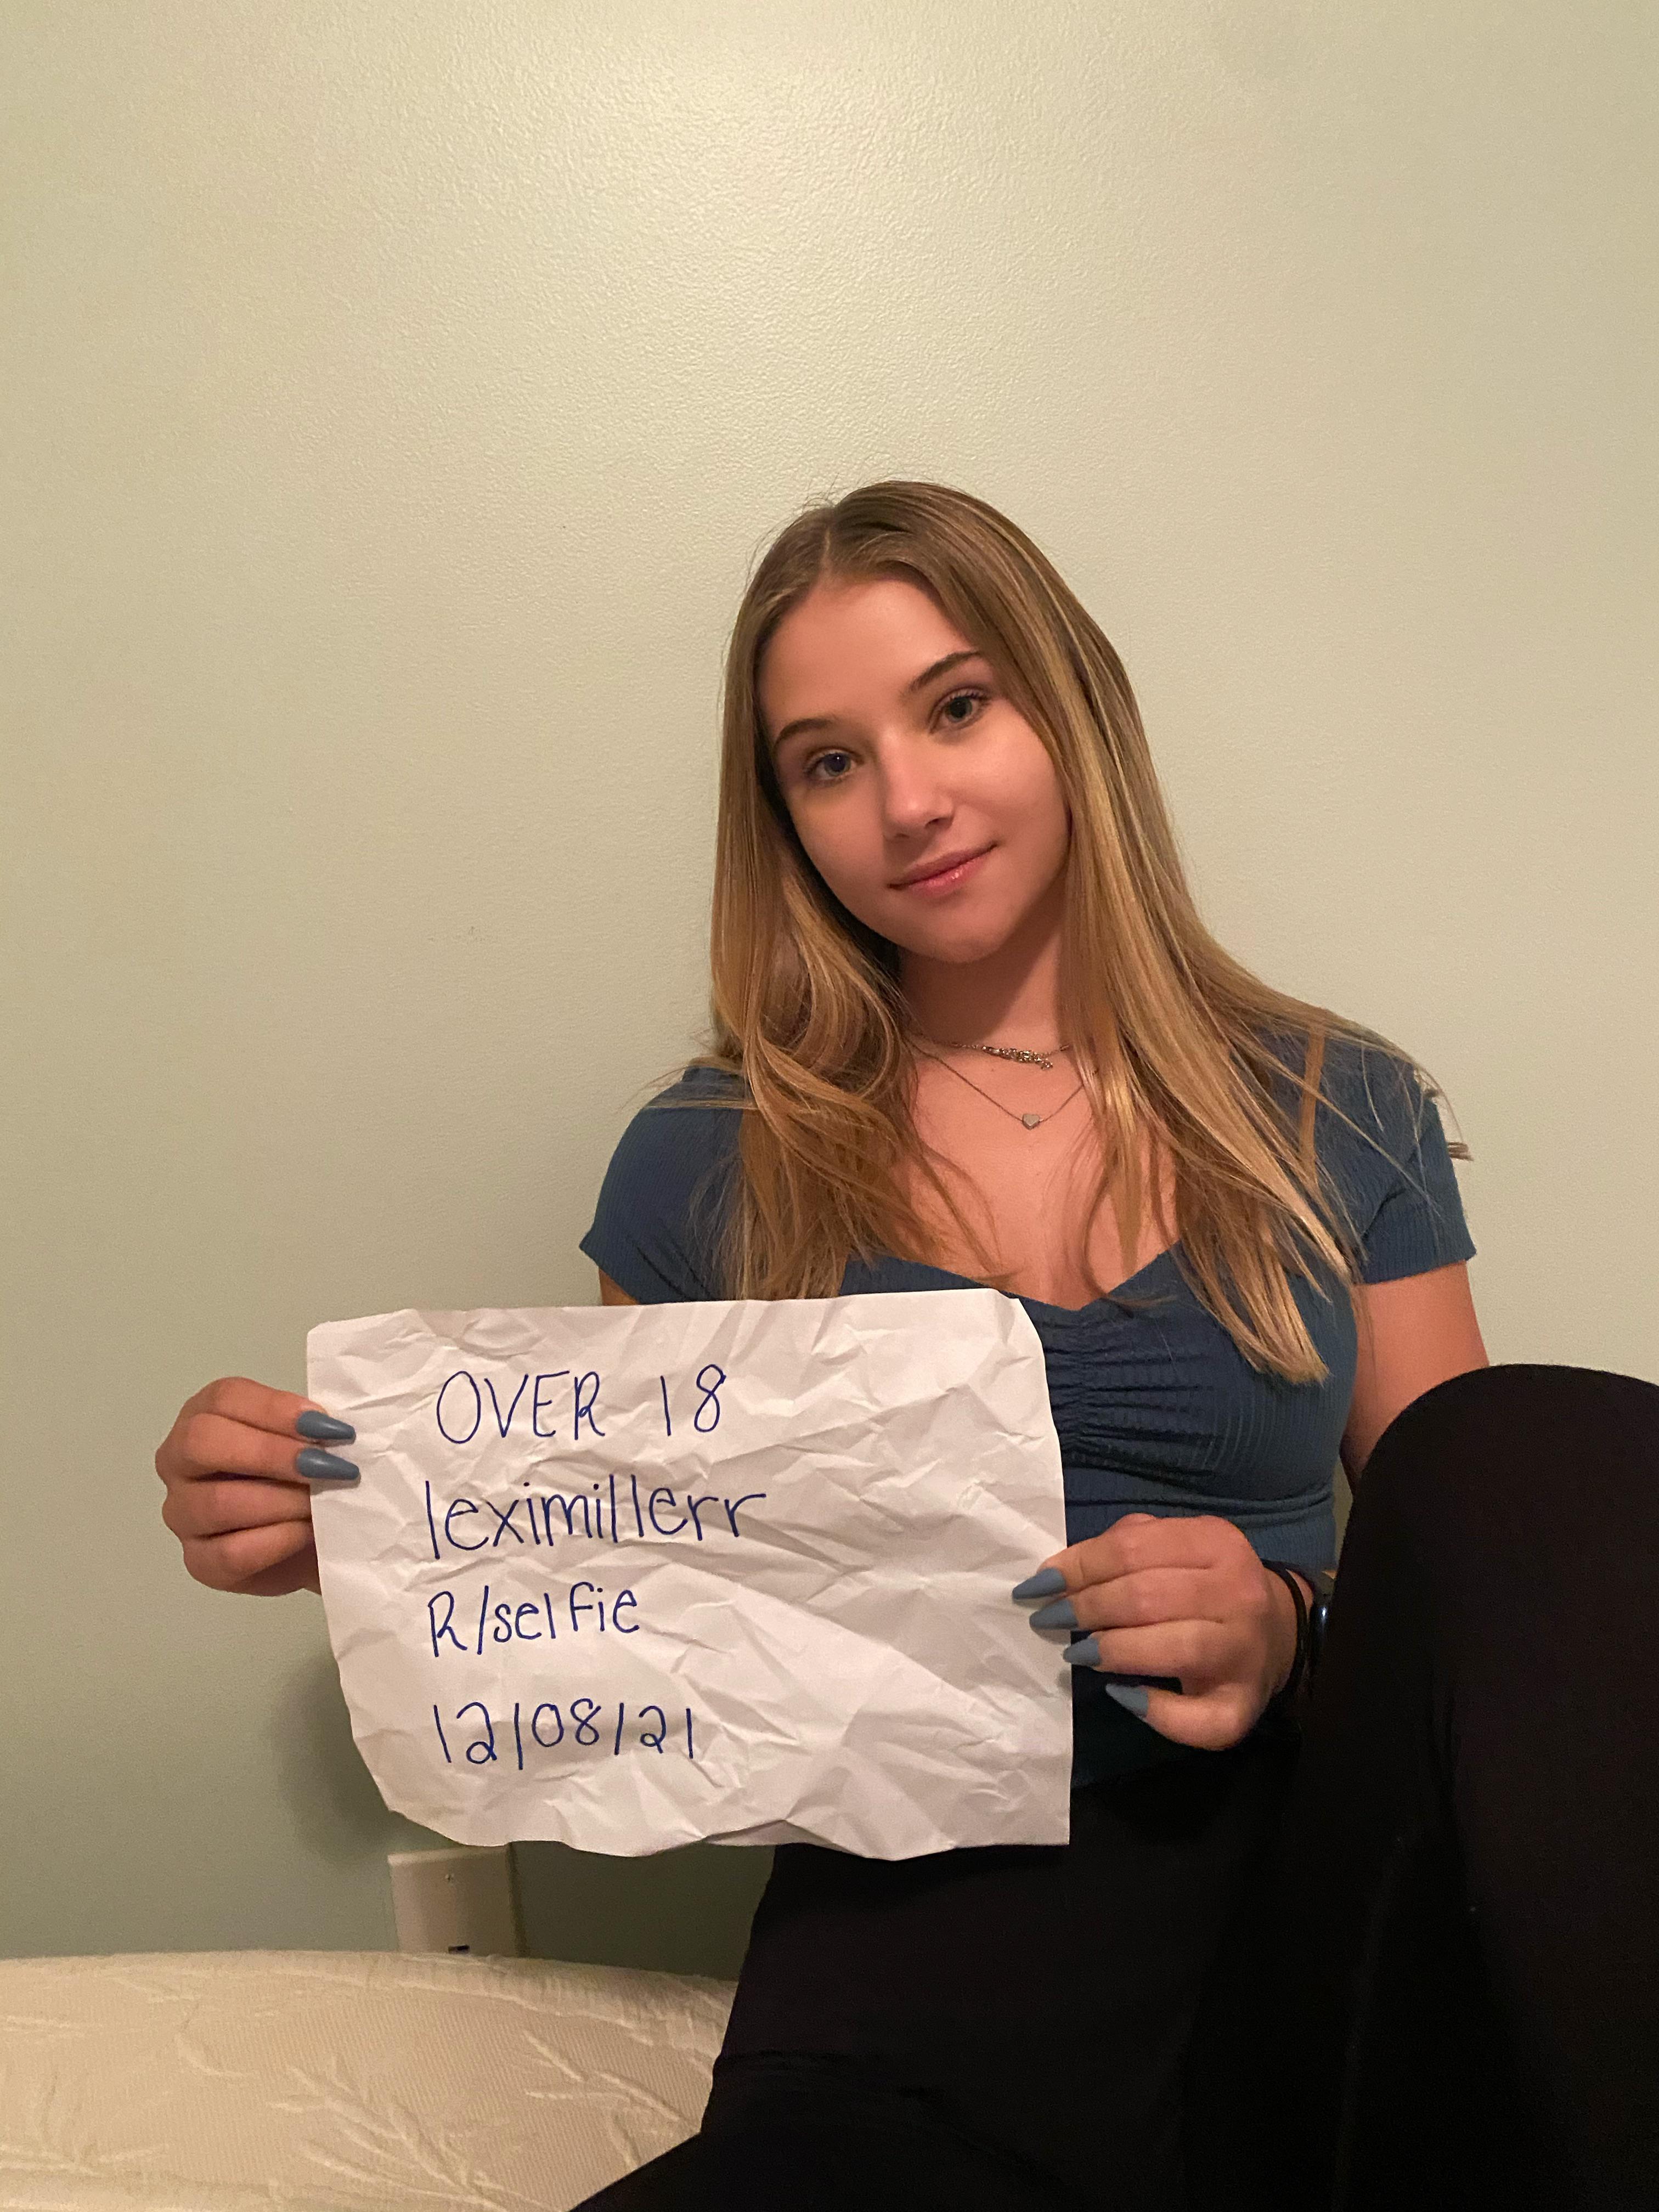 OVER 18
leximillerr
R/selfie
12/08/21